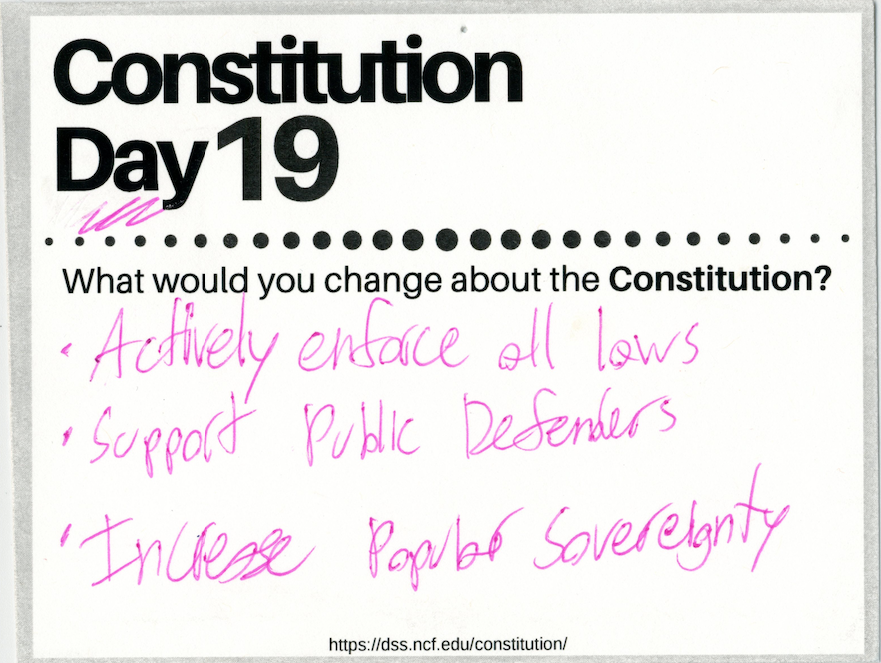 Constitution
Day 19
What would you change about the Constitution?
· Actively enforce all laws
· Support Public Defenders
· Increase Popular Sovereignty
https://dss.ncf.edu/constitution/